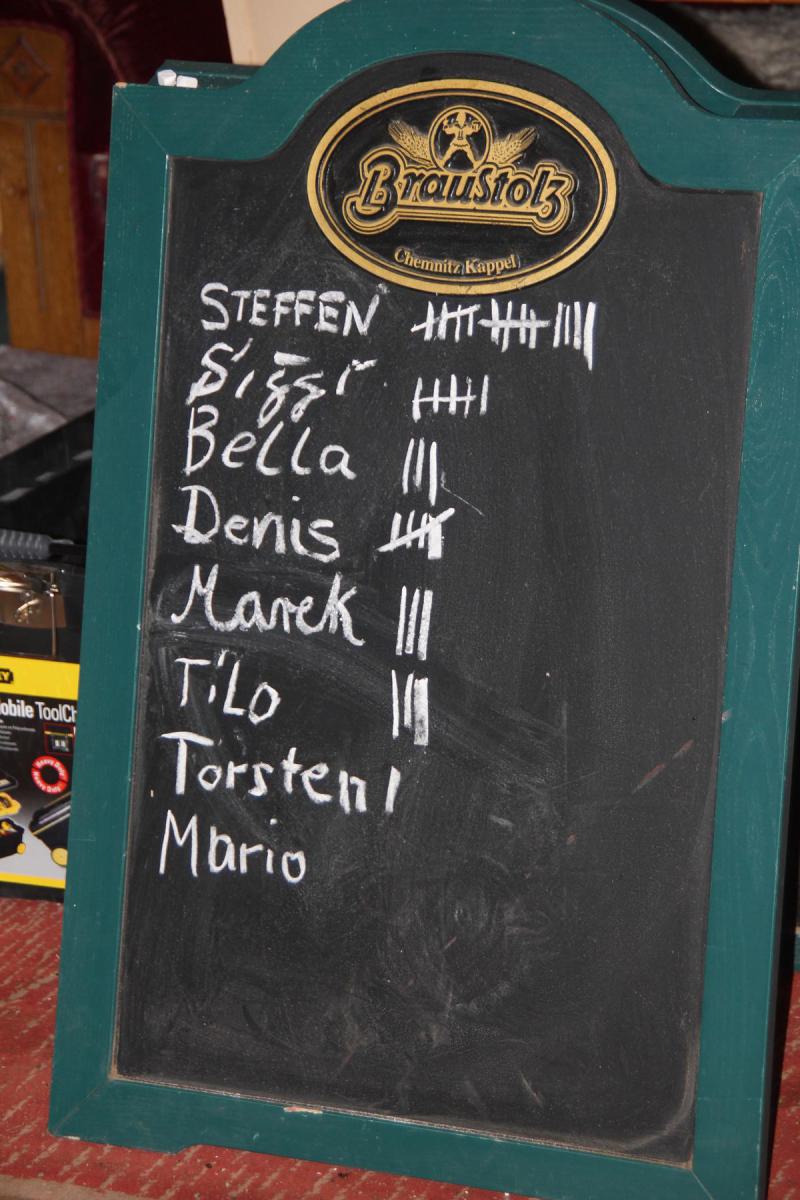 Braustolz
Chemnitz Kappel
STEFFEN
Siggi
Bella
Denis
Marek
TiLo
Torsten
Mario
obile ToolCh